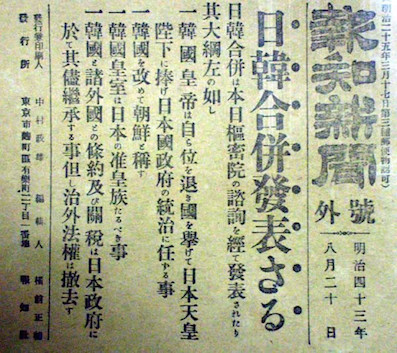 明治二十五年三月十七日第三種郵便物認可
報知新聞
號外
明治四十三年
八月二十日
日韓合併發表さる
日韓合併は本日樞密院の諮詢を經て發表されたり
其大綱左の如し
一韓國皇帝は自ら位を退き國を擧げて日本天皇
陛下に捧げ日本國政府の統治に任する事
一韓國を改めて朝鮮と稱す
一韓國皇室は日本の准皇族たるべき事
一韓國と諸外國との條約及び關税は日本政府に
於て其儘繼承する事但し治外法權は撤去す
發行兼印刷人 中村政雄 編輯人
發行所 東京市麴町區有樂町二丁目一番地 報知社